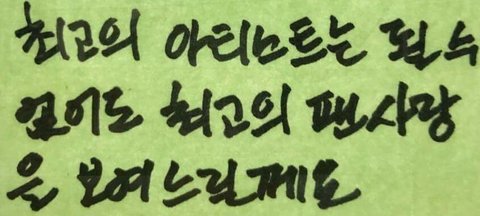 최고의 아티스트는 될 수
없어도 최고의 팬사랑
을 보여드릴께요